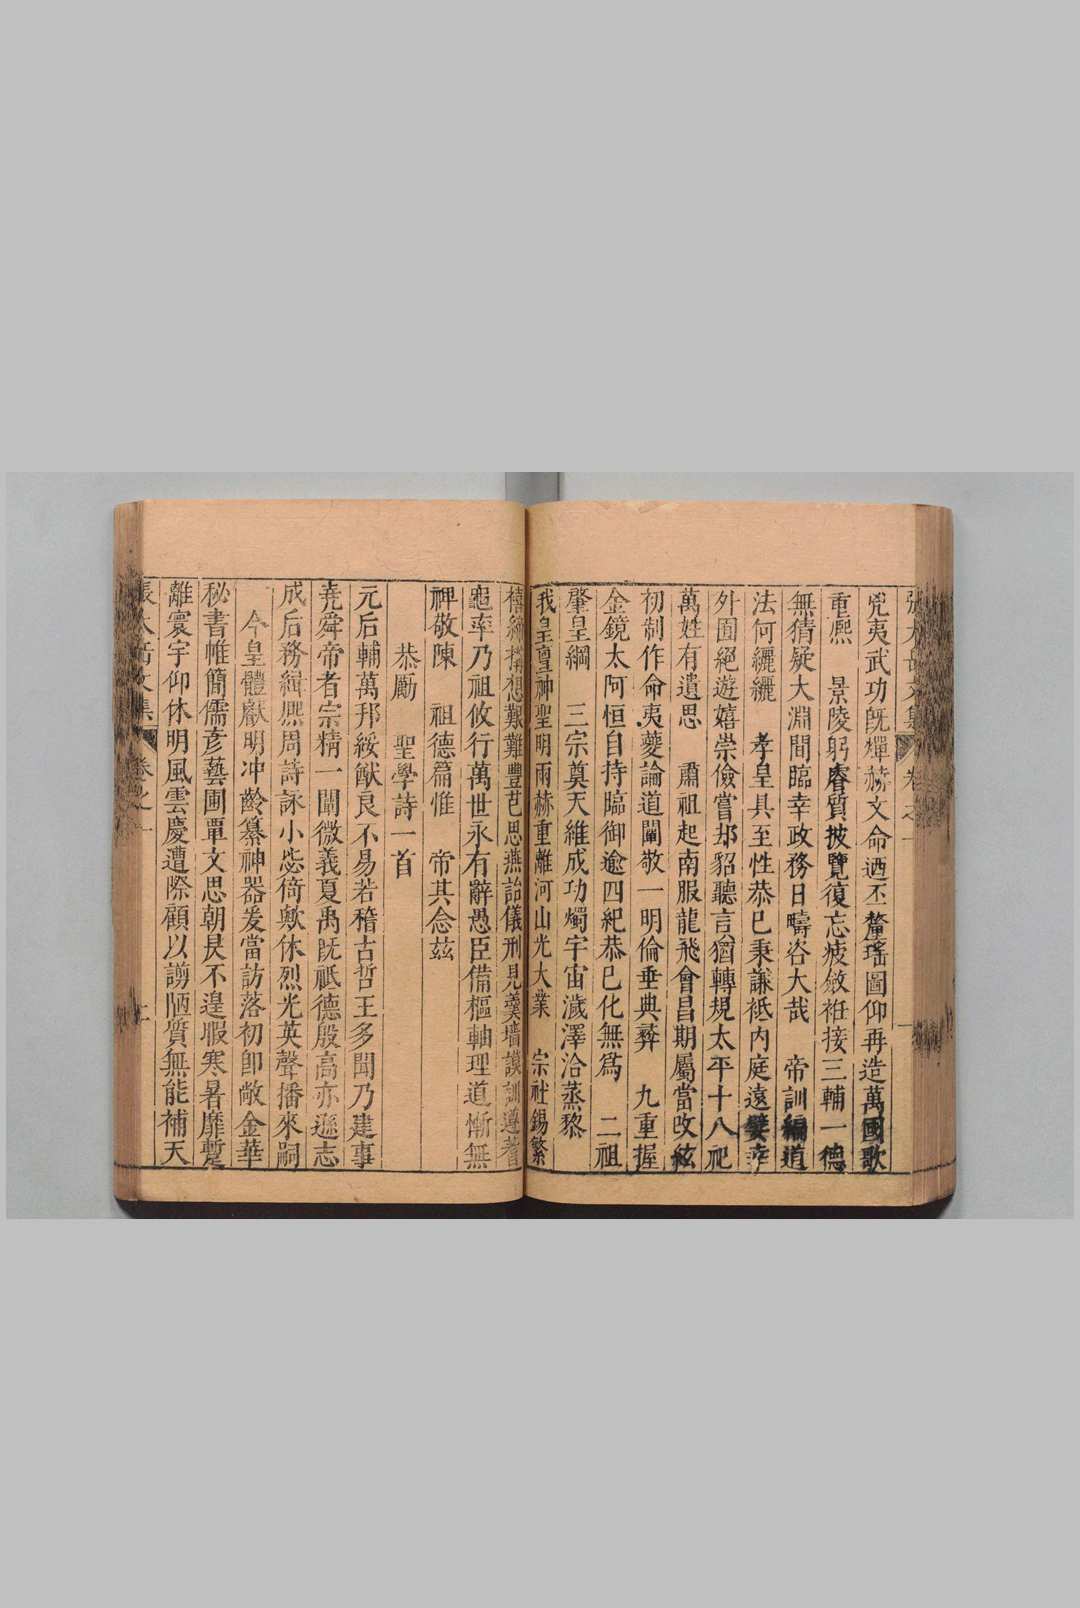 張太岳文集 卷之一
兇夷武功既燀赫文命迺丕釐瑤圖仰再造萬國歌
重熈 景陵躬睿質披覽復忘疲斂袵接三輔一德
無猜疑大淵間臨幸政務日疇咨大哉 帝訓編道
法何纚纚 孝皇具至性恭已秉謙袛內庭遠嬖幸
外囿絕遊嬉崇儉嘗却貂聽言猶轉規太平十八祀
萬姓有遺思 肅祖起南服龍飛會昌期屬當改絃
初制作命夷夔論道闡敬一明倫垂典彝 九重握
金鏡太阿恒自持臨御逾四紀恭已化無爲 二祖
肇皇綱 三宗奠天維成功燭宇宙濊澤洽蒸黎
我皇亶神聖明兩赫重離河山光大業 宗社錫繁
禧締搆想艱難豐芑思燕詒儀刑見羹墻謨訓遵蓍
龜率乃祖攸行萬世永有辭愚臣備樞軸理道慚無
裨敬陳 祖德篇惟 帝其念茲
恭勵 聖學詩一首
元后輔萬邦綏猷良不易若稽古哲王多聞乃建事
堯舜帝者宗精一闡微義夏禹既祇德殷高亦遜志
成后務緝熈周詩詠小毖猗歟休烈光英聲播來嗣
今皇體獻明冲齡纂神器爰當訪落初卽敞金華
秘書帷簡儒彥藝圃覃文思朝昃不遑暇寒暑靡蹔
離寰宇仰休明風雲慶遭際顧以謭陋質無能補天
張太岳文集 卷之一 二